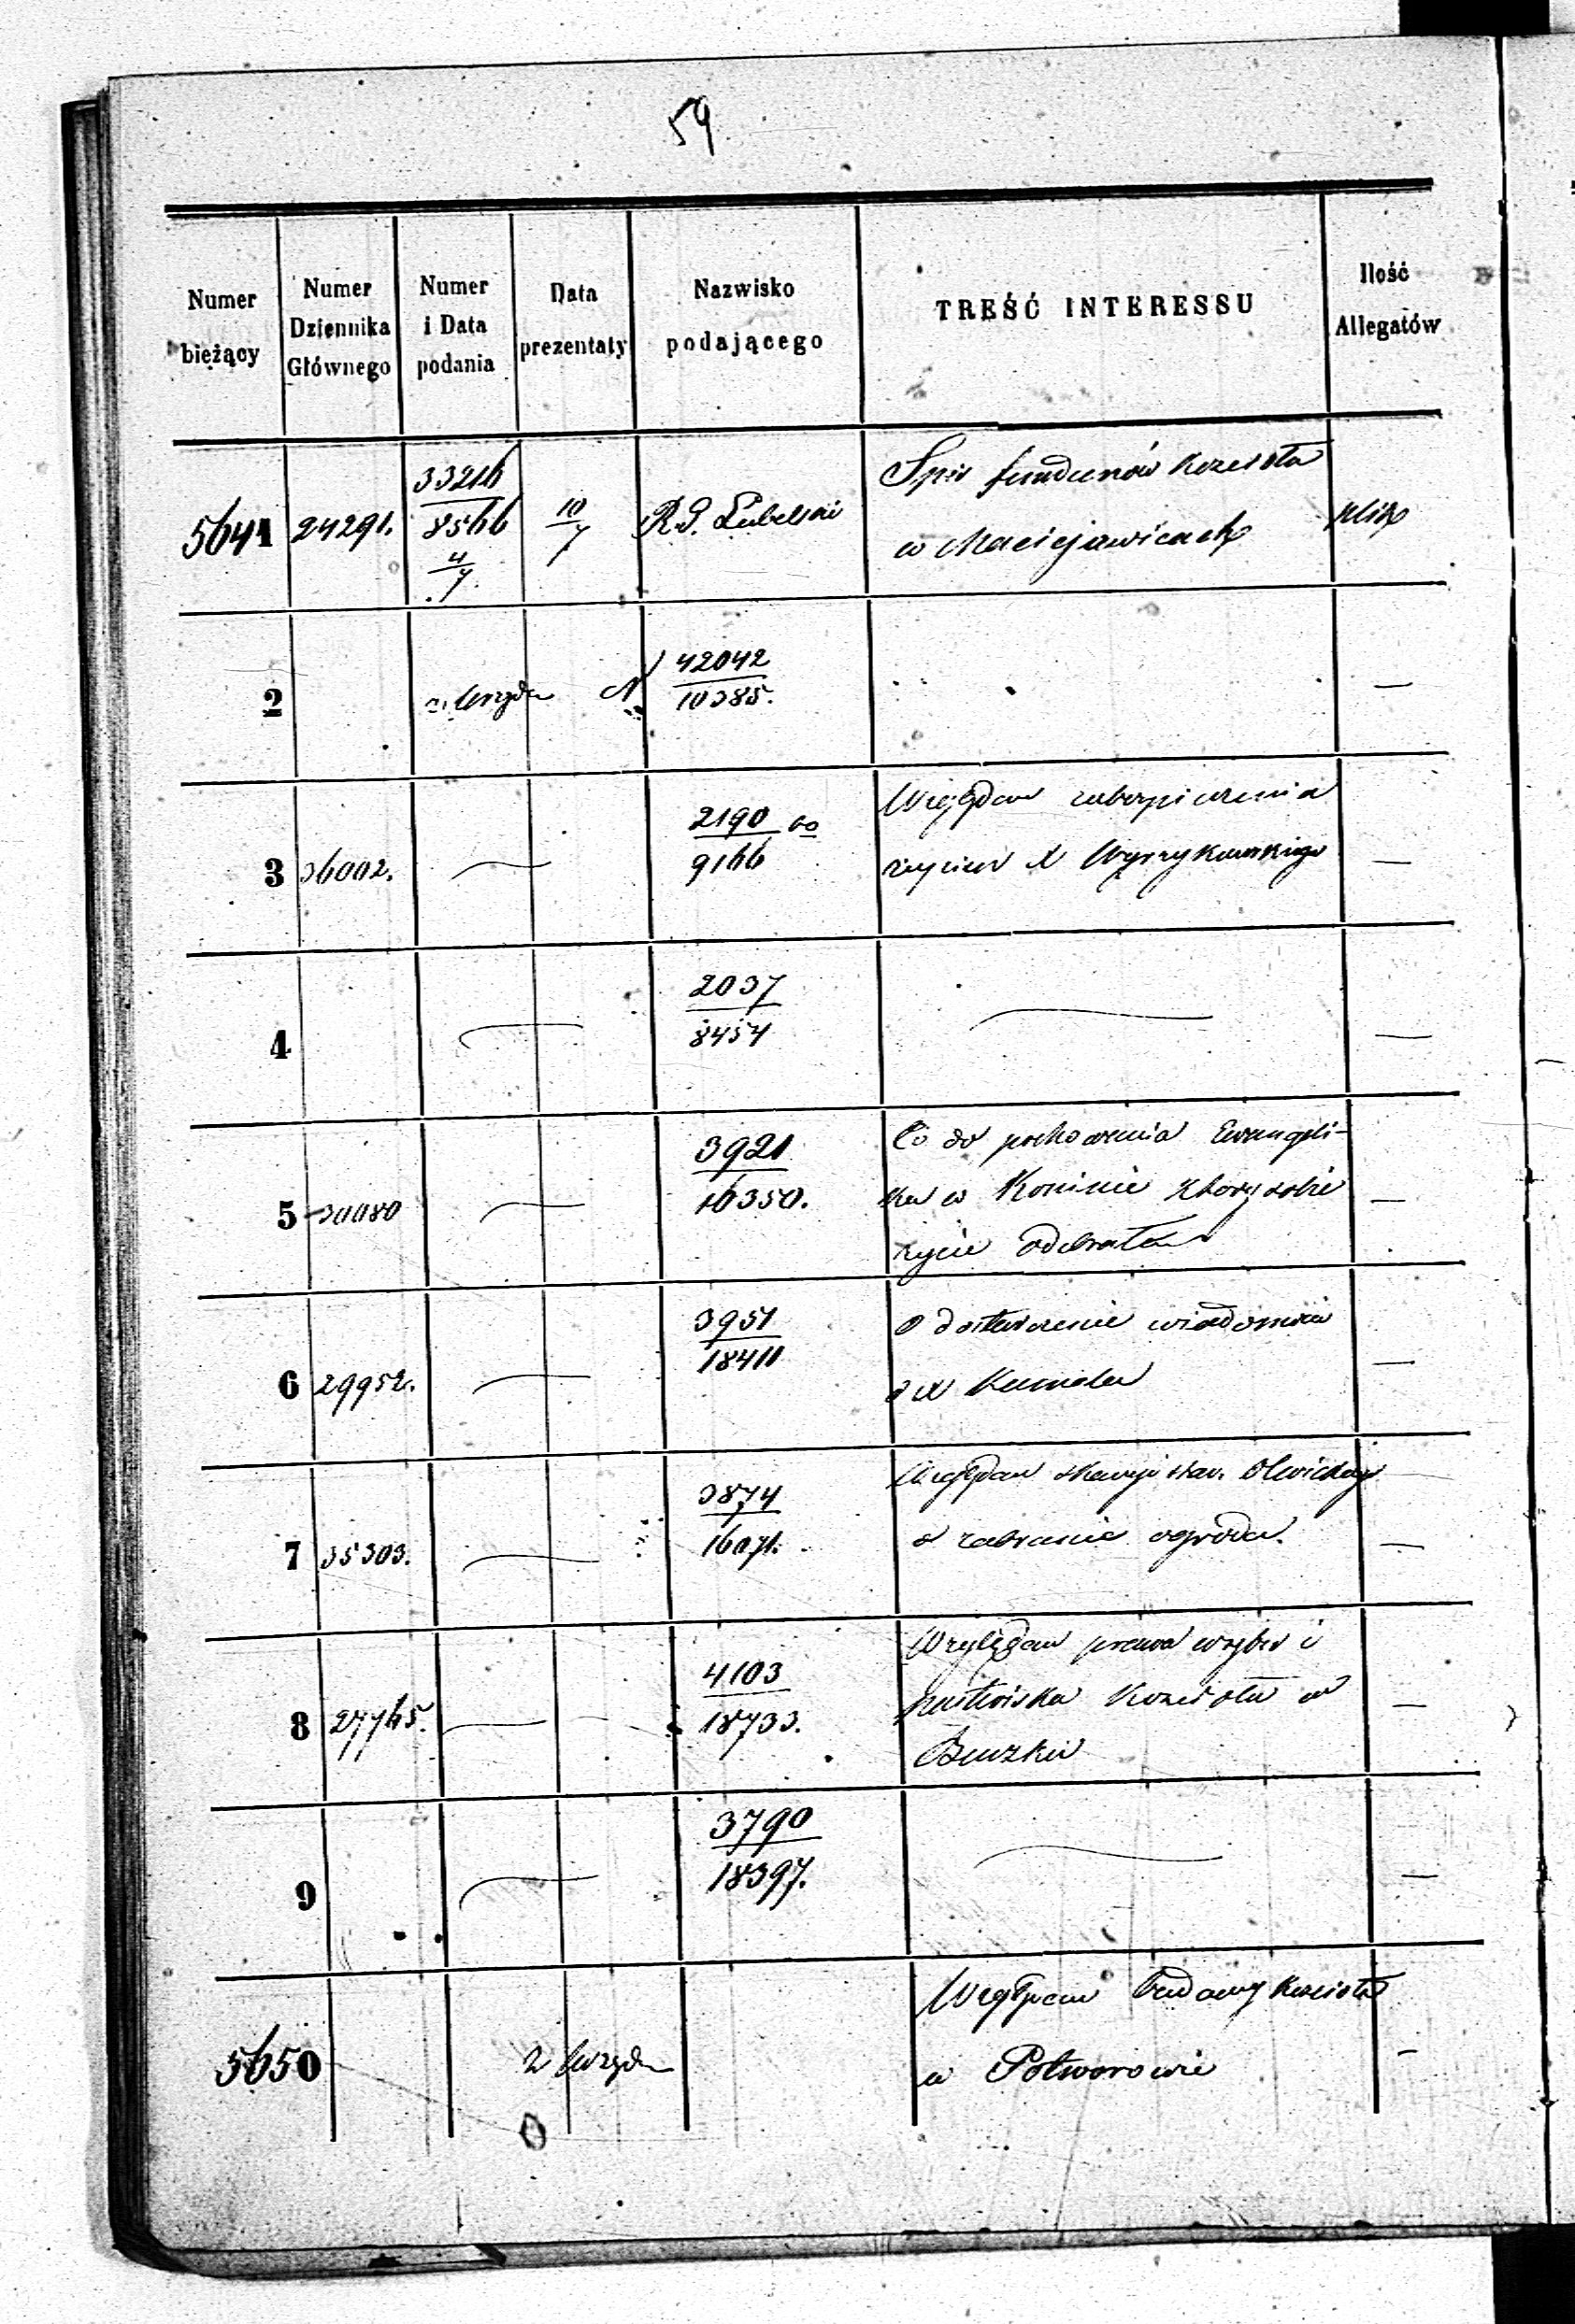 59
Numer bieżący
Numer Dziennika Głównego
Numer i Data podania
Data prezentaty
Nazwisko podającego
TREŚĆ INTERESSU
Ilość Allegatów
5641 24291. 33216/8566 4/7 10/7 R. G. Lubelski
Spis fundunów kościoła
w Maciejowicach
2 z Urzędu N 42042/10385. —
3 36002. — 2190/9166
Względem zabezpieczenia
X Wyrzykowskiego —
4 — 2037/8454 — —
5 30080 — 3921/16350.
Co do pochowania Ewangeli-
ka w Koninie który sobie —
życie odebrał
6 29952. — 3951/18411
o dostarczenie wiadomości
—
7 35303. — 3874/16071.
Względem skargi
o zabranie ogrodu. —
8 27765. — 4103/18733.
Względem prawa wrębu i
pastwiska Kościoła w —
9 — 3790/18397. — —
5650 z Urzędu
Względem budowy kościoła
w Potworowie —